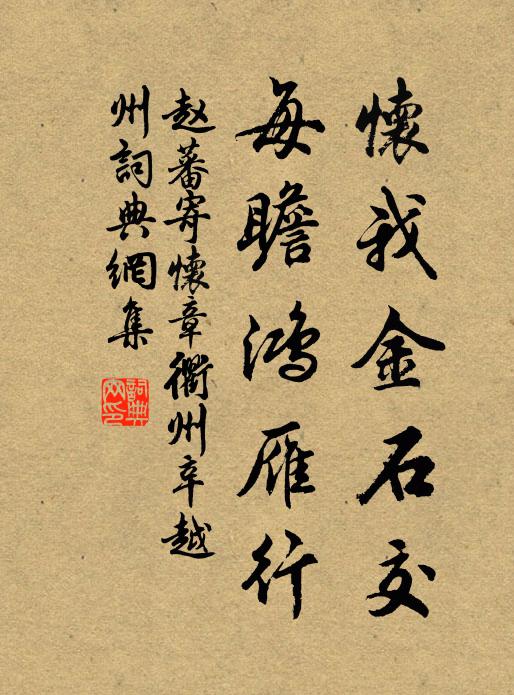 懷我金石交
每瞻鴻雁行
赵蕃寄懷章衢州辛越
州詞典網集
詞典